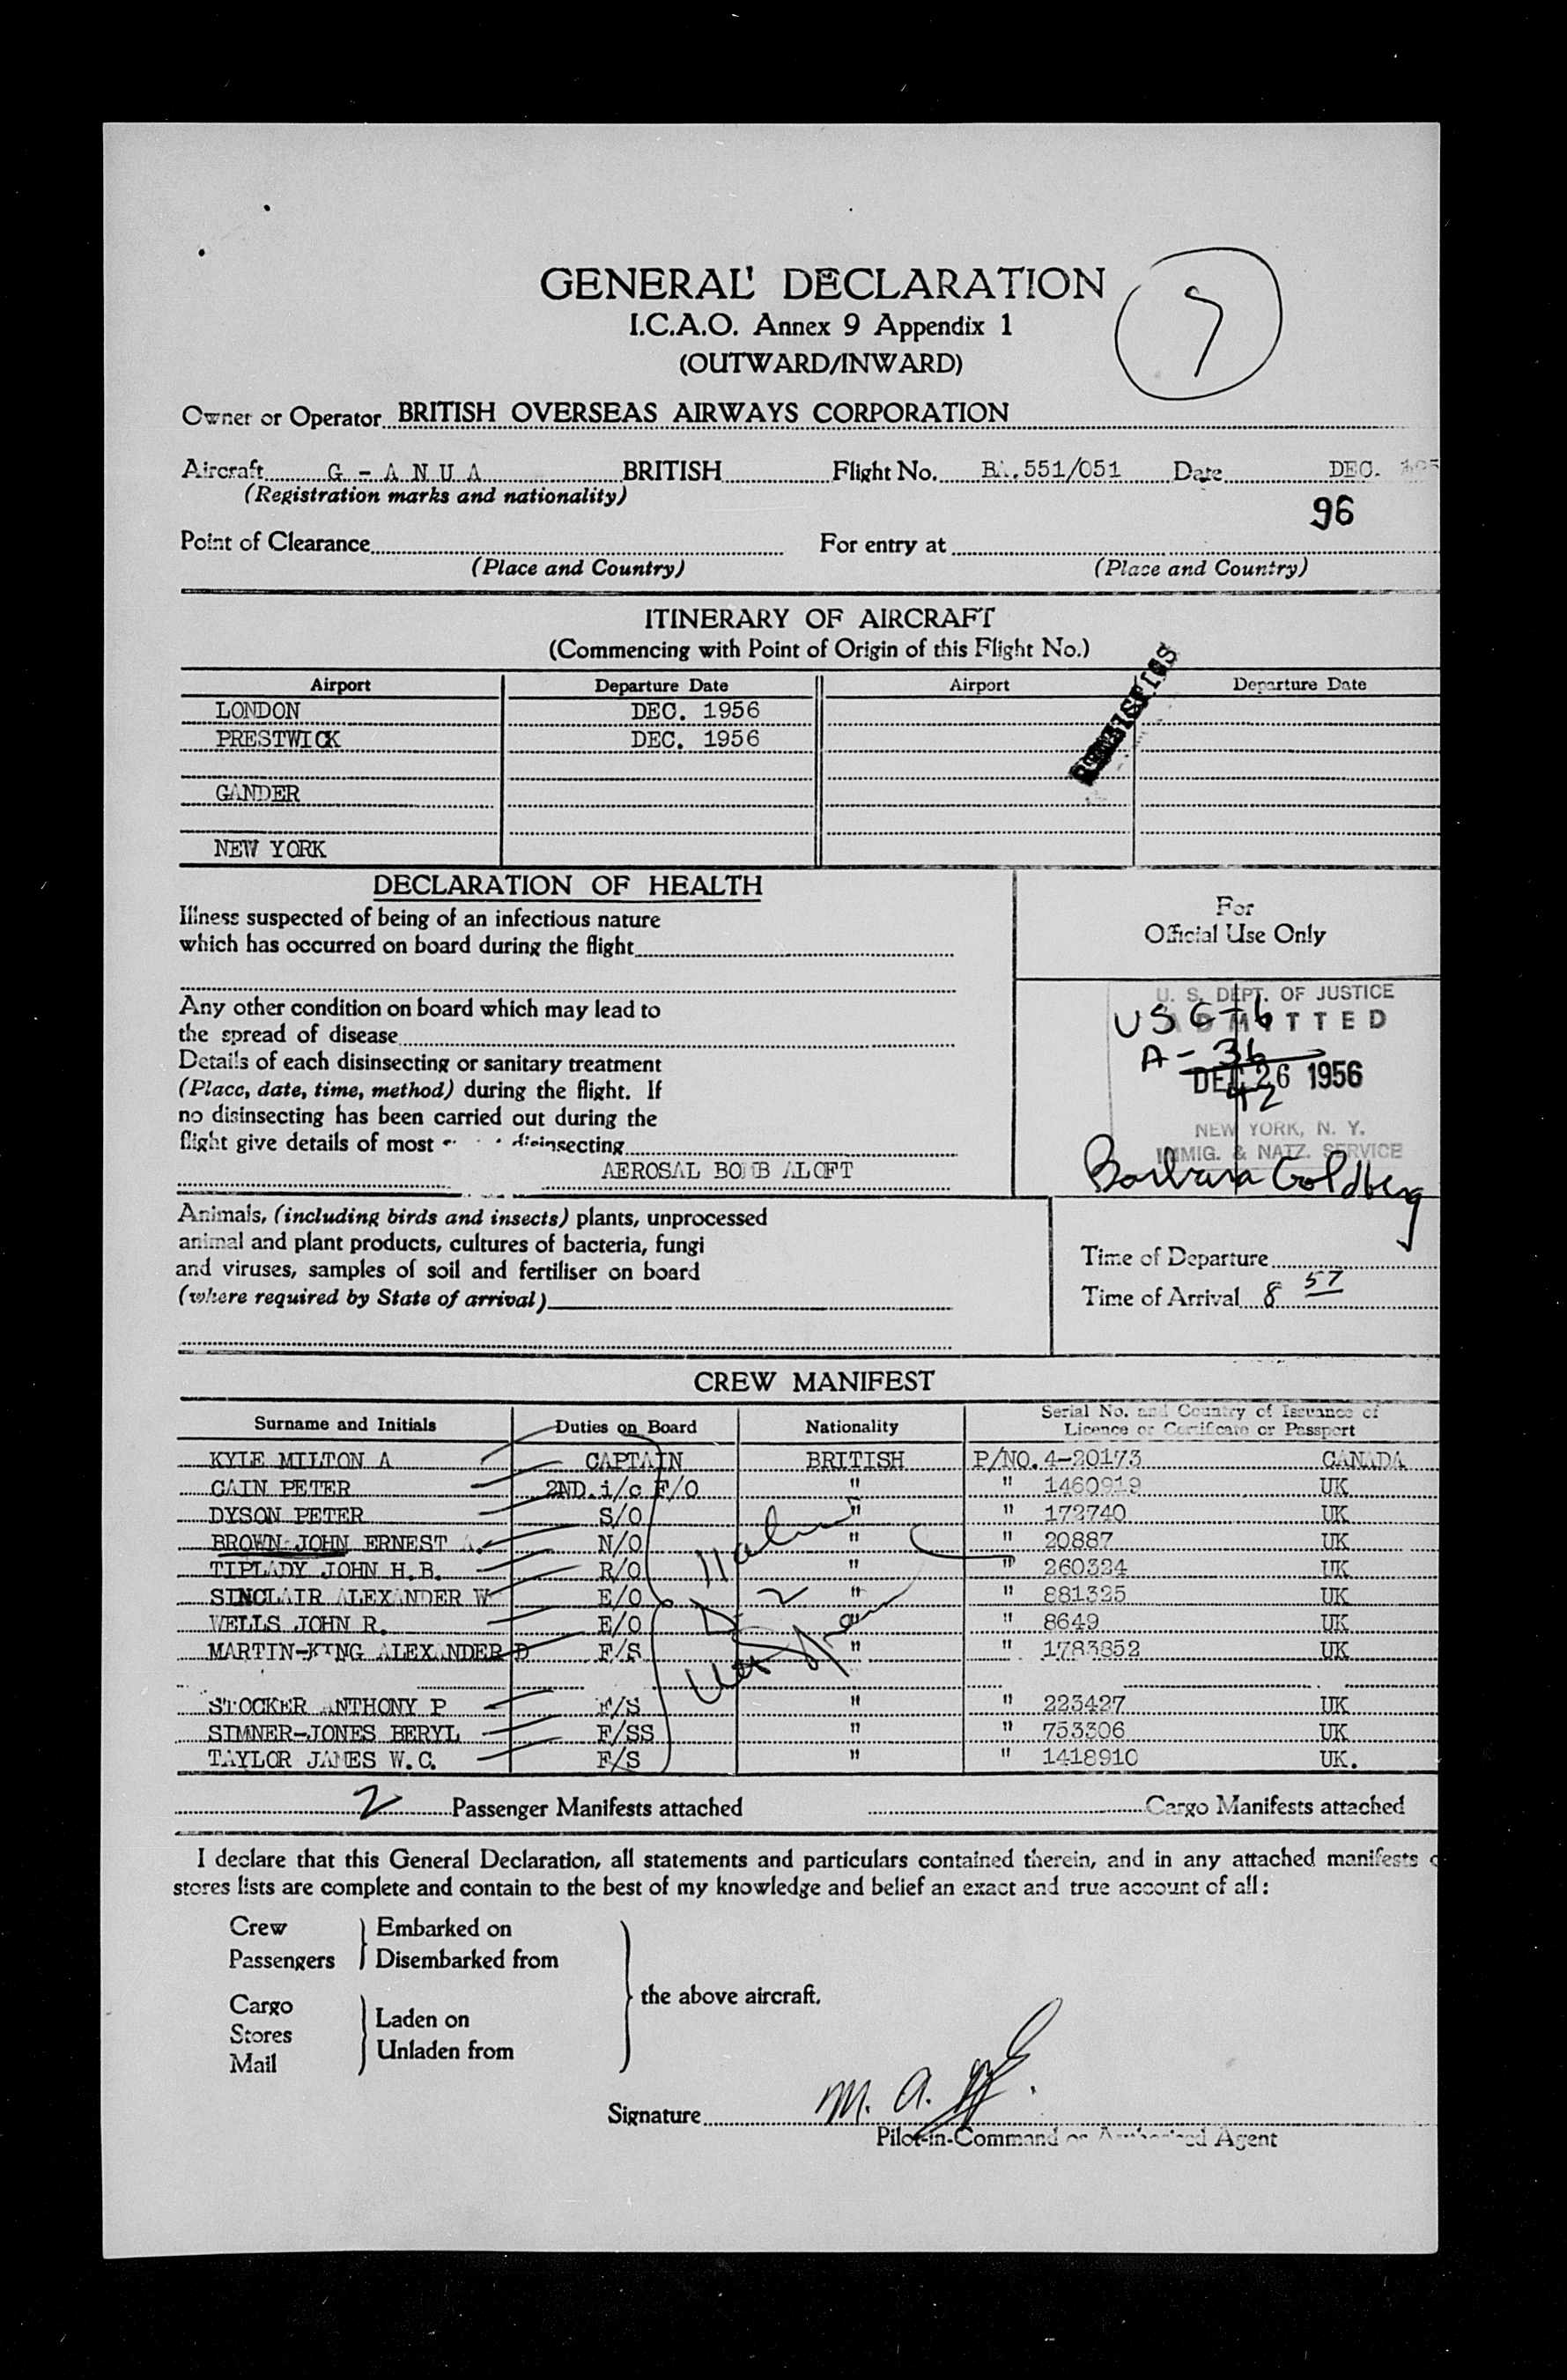 GENERAL DECLARATION
I.C.A.O. Annex 9 Appendix 1
(OUTWARD/INWARD)
Owner or Operator BRITISH OVERSEAS AIRWAYS CORPORATION
Aircraft G - A N U A BRITISH Flight No. BA.551/051 Date DEC.
(Registration marks and nationality)
96
Point of Clearance For entry at
(Place and Country) (Place and Country)
ITINERARY OF AIRCRAFT
(Commencing with Point of Origin of this Flight No.)
Airport Departure Date Airport Departure Date
LONDON DEC. 1956
PRESTWICK DEC. 1956
GANDER
NEW YORK
DECLARATION OF HEALTH
Illness suspected of being of an infectious nature
which has occurred on board during the flight
For
Official Use Only
Any other condition on board which may lead to
the spread of disease
Details of each disinsecting or sanitary treatment
(Place, date, time, method) during the flight. If
no disinsecting has been carried out during the
flight give details of most disinsecting
AEROSAL BOMB ALOFT
U. S. DEPT. OF JUSTICE
ADMITTED
USC-6
A-36
DEC 26 1956
42
NEW YORK, N. Y.
IMMIG. & NATZ. SERVICE
Barbara Goldberg
Animals, (including birds and insects) plants, unprocessed
animal and plant products, cultures of bacteria, fungi
and viruses, samples of soil and fertiliser on board
(where required by State of arrival)
Time of Departure
Time of Arrival 8 57
CREW MANIFEST
Surname and Initials Duties on Board Nationality Serial No. and Country of Issuance of
Licence or Certificate or Passport
KYLE MILTON A CAPTAIN BRITISH P/NO. 4-20173 CANADA
CAIN PETER 2ND. i/c F/O " " 1460919 UK
DYSON PETER S/O " " 172740 UK
BROWN JOHN ERNEST A. N/O " " 20887 UK
TIPLADY JOHN H.B. R/O " " 260324 UK
SINCLAIR ALEXANDER W E/O " " 881325 UK
WELLS JOHN R. E/O " " 8649 UK
MARTIN-KING ALEXANDER D F/S " " 1783852 UK
STOCKER ANTHONY P F/S " " 223427 UK
SIMNER-JONES BERYL F/SS " " 753306 UK
TAYLOR JAMES W.C. F/S " " 1418910 UK.
2 Passenger Manifests attached Cargo Manifests attached
I declare that this General Declaration, all statements and particulars contained therein, and in any attached manifests
stores lists are complete and contain to the best of my knowledge and belief an exact and true account of all:
Crew Embarked on
Passengers Disembarked from
the above aircraft.
Cargo Laden on
Stores
Mail Unladen from
Signature M. A.
Pilot-in-Command or Authorised Agent